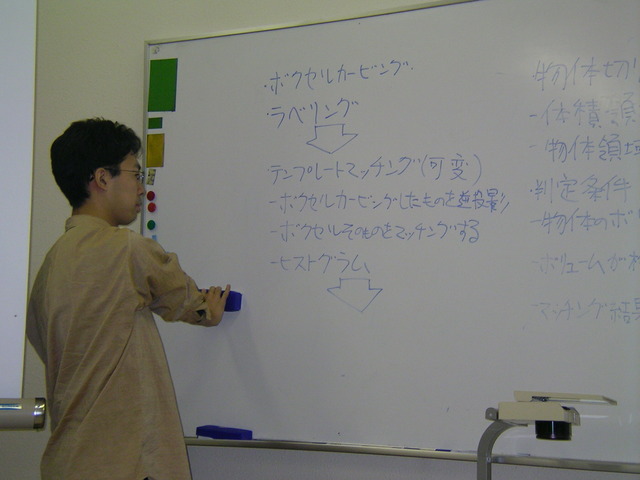 ・ボクセルカービング
・ラベリング
・テンプレートマッチング(可変)
-ボクセルカービングしたものを逆投影
-ボクセルそのものをマッチングする
-ヒストグラム
・物体切り
-体積領
-物体領域
・判定条件
-物体のボ
-ボリュームが
-マッチング結果